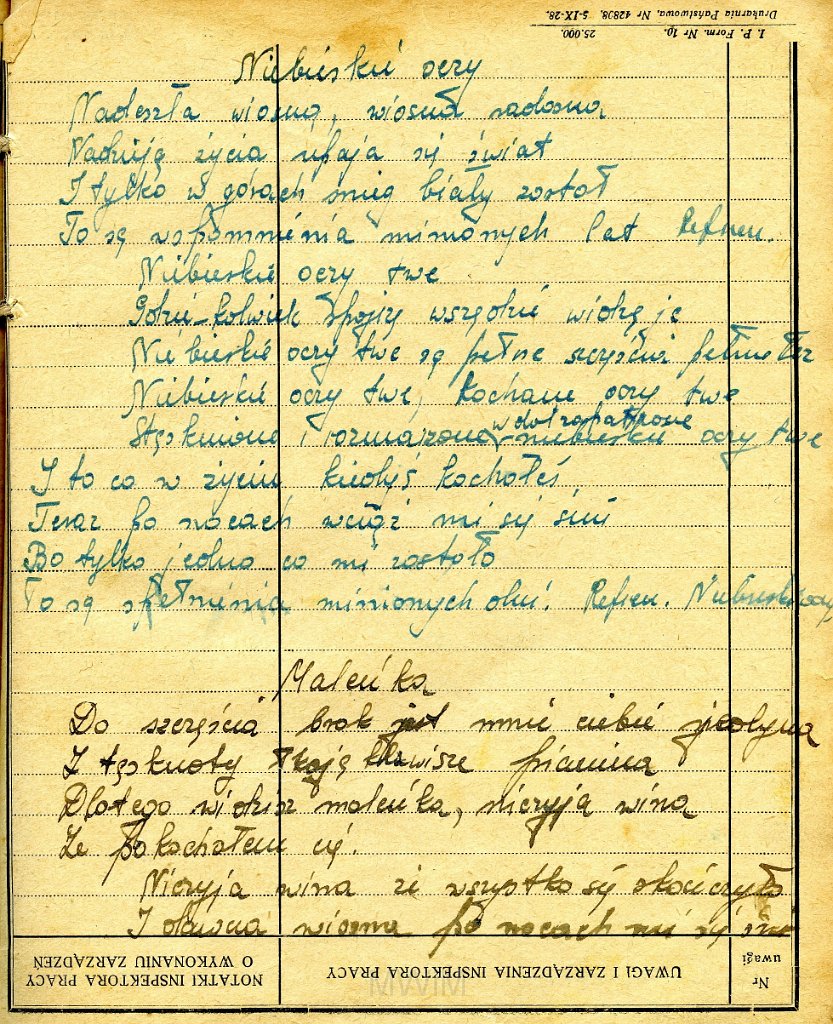 I. P. Form. Nr 1g. 25.000.
Drukarnia Państwowa, Nr 42808. 5-IX-28.
Niebieskie oczy
Nadeszła wiosna, wiosna radosna
Nadzieją życia upaja się świat
I tylko w górach śnieg biały został
To są wspomnienia minionych lat Refren.
Niebieskie oczy twe
Gdzie-kolwiek spojrzę wszędzie widzę je
Niebieskie oczy twe są pełne szczęścia pełne łez
Niebieskie oczy twe, kochane oczy twe
w dal zapatrzone
Stęsknione i rozmarzone niebieskie oczy twe
I to co w życiu kiedyś kochałeś
Teraz po nocach wciąż mi się śni
Bo tylko jedno co mi zostało
To są spełnienia minionych dni. Refren. Niebieskie oczy
Maleńka
Do szczęścia brak jest mnie ciebie jedyna
Z tęsknoty łkają klawisze pianina
Dlatego widzisz maleńka, niczyja wina
Że pokochałem cię.
Niczyja wina że wszystko się skończyło
I dawna wiosna po nocach mi się śni
NOTATKI INSPEKTORA PRACY O WYKONANIU ZARZĄDZEŃ
UWAGI I ZARZĄDZENIA INSPEKTORA PRACY
Nr uwagi
MWiM